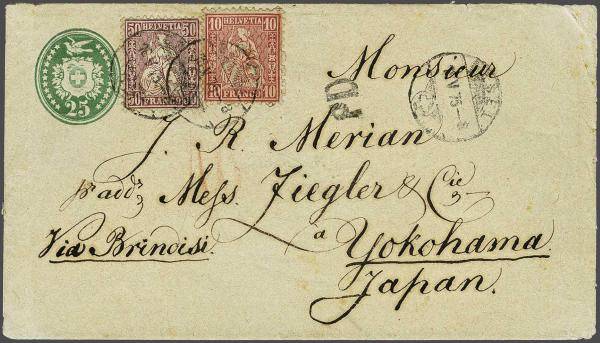 25
50 HELVETIA 50
50 FRANCO 50
10 HELVETIA 10
10 FRANCO 10
PD
Monsieur
J. R. Merian
pr addr Mess. Ziegler & Cie
Via Brindisi. a Yokohama.
Japan.